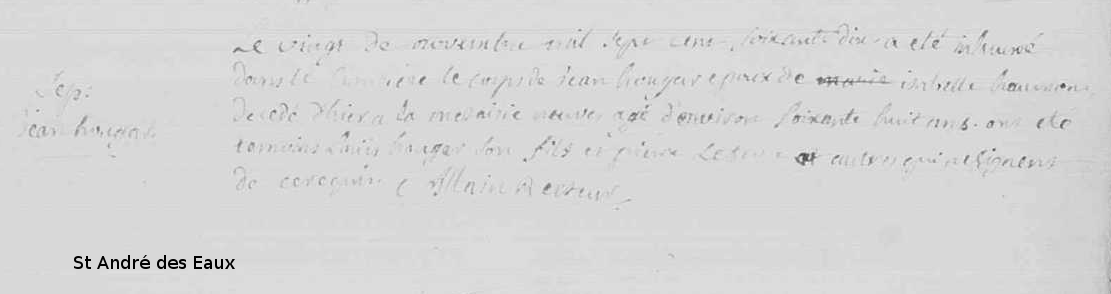 Le vingt de novembre mil sept cent soixante dix a été inhumé
Sep:
dans le cimetiere le corps de jean hougar epoux de marie isabelle
jean hougar
decedé d'hier a la metairie neuve agé d'environ soixante huit ans. ont été
temoins Louis hougar son fils et pierre et autres qui ne signent
de ce requis Allain Recteur
St André des Eaux